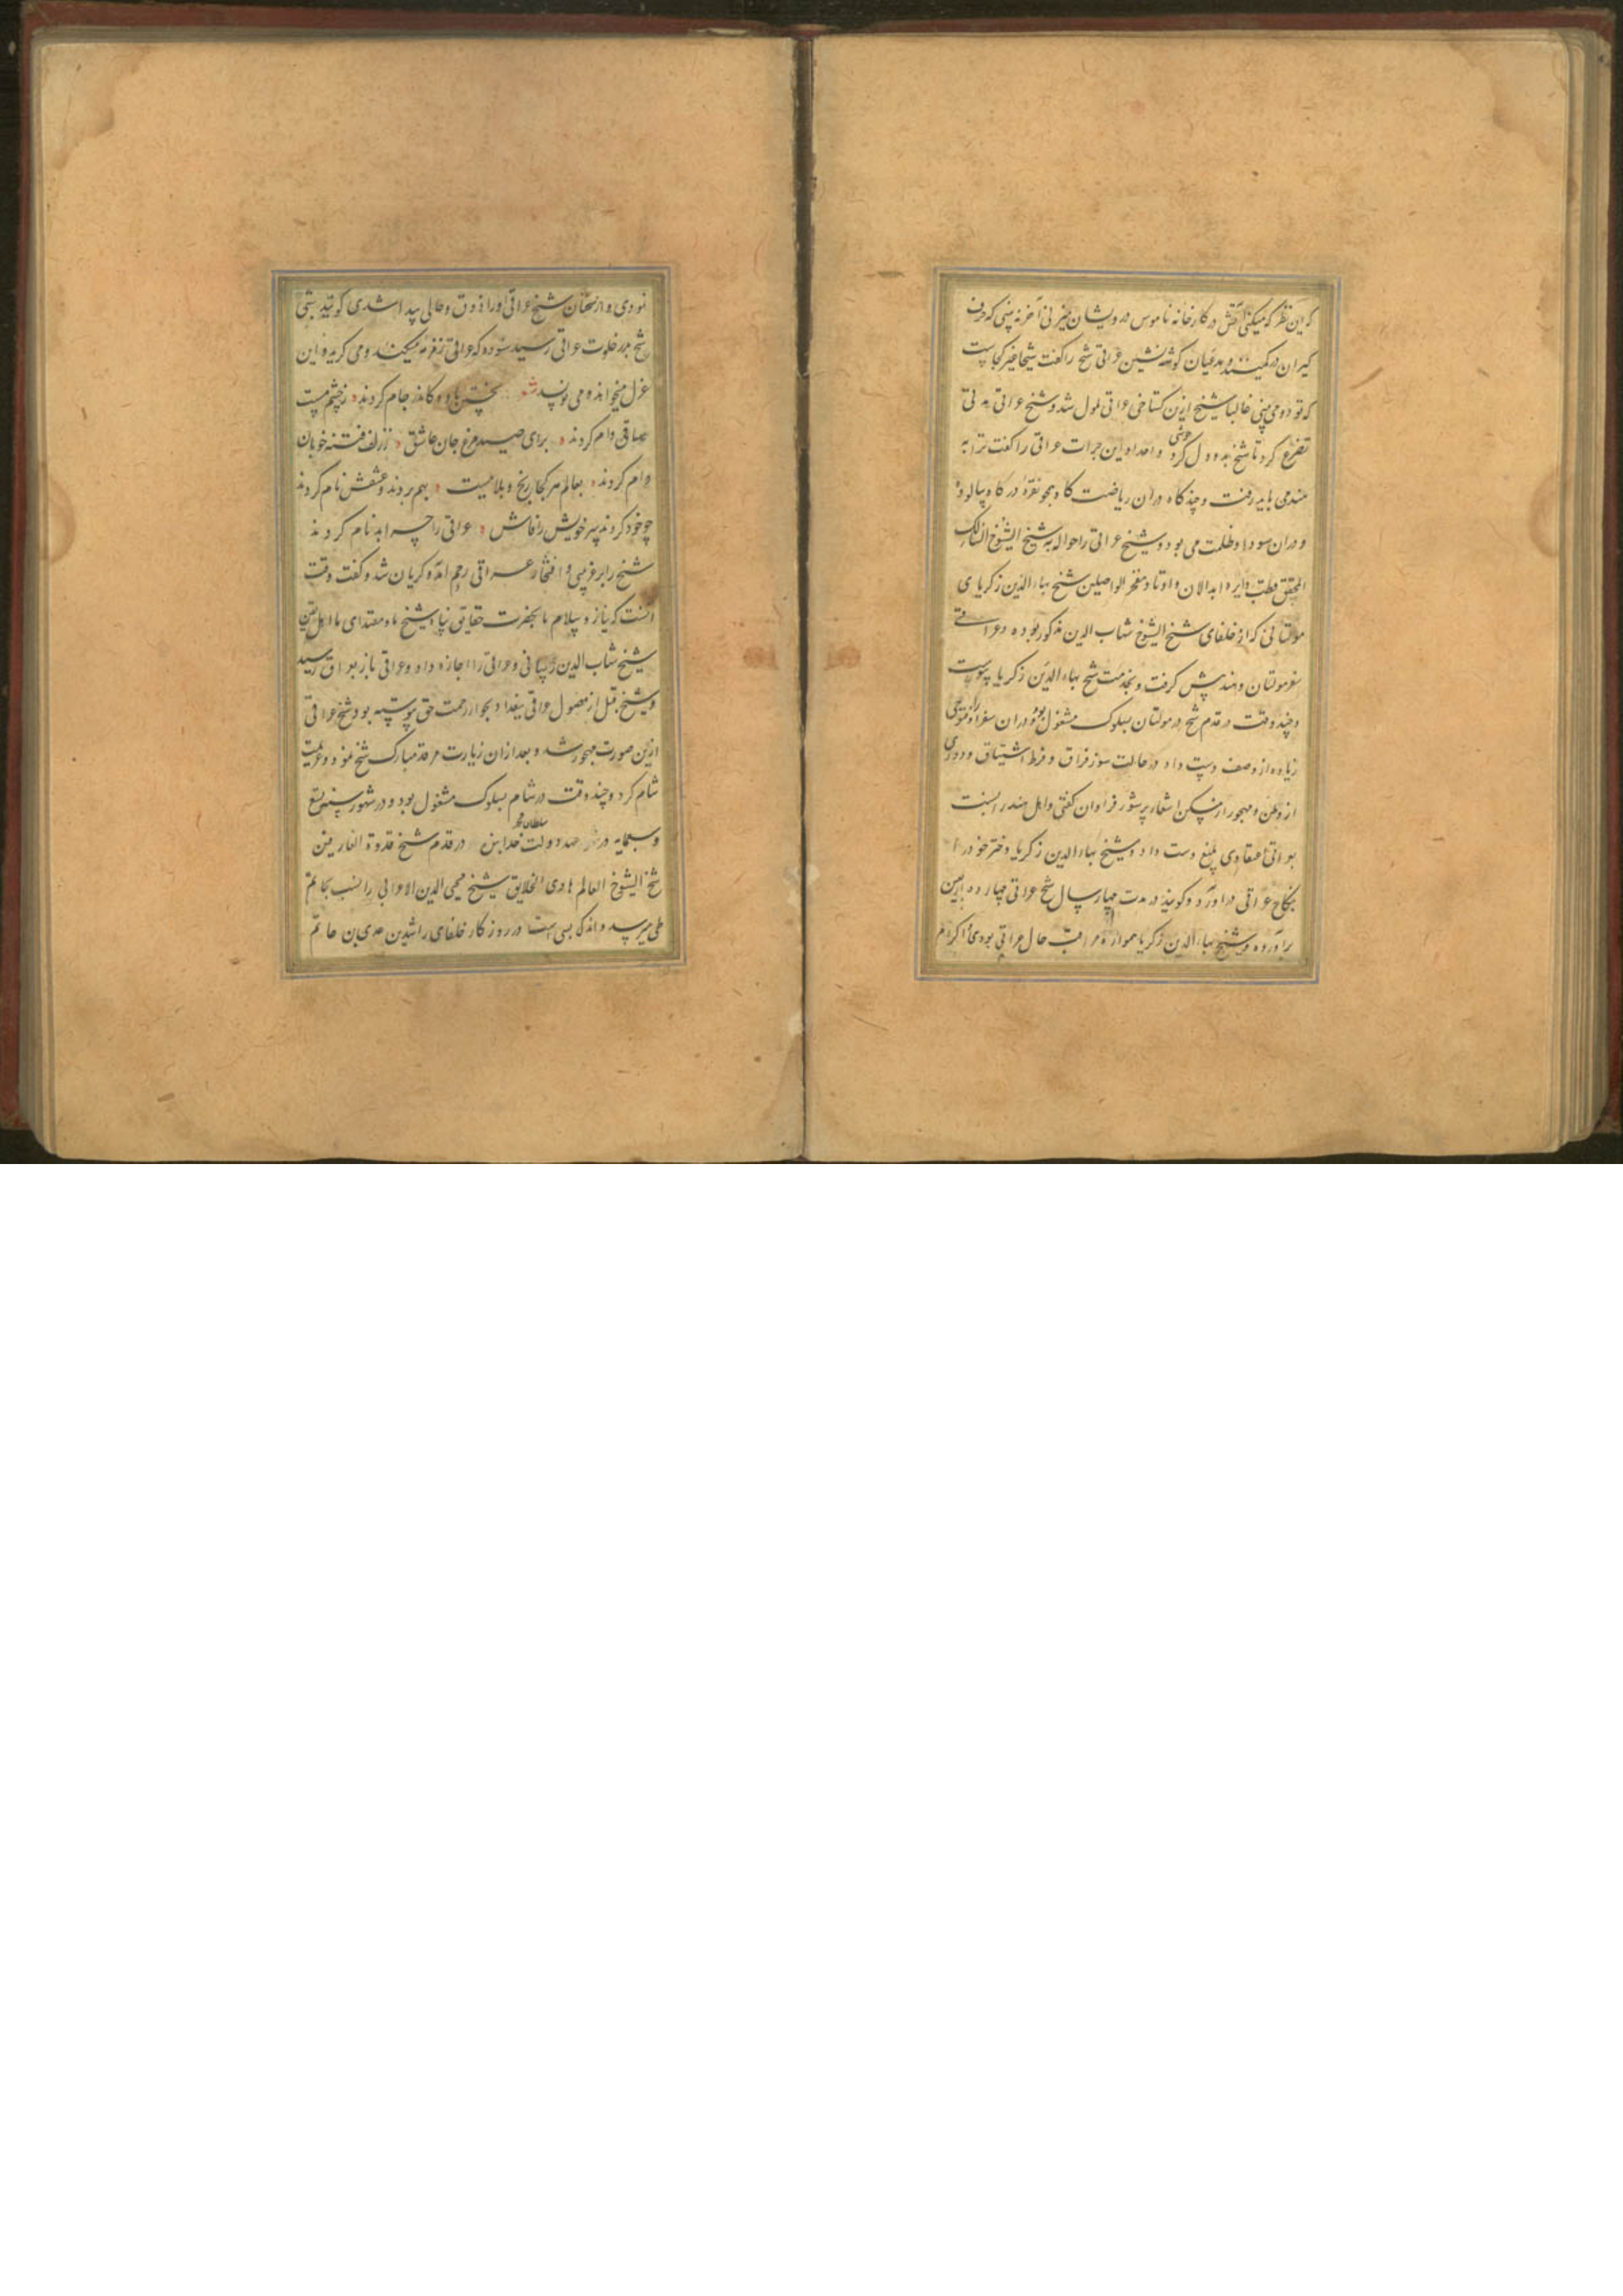 که این نظر که میکنی آتش در کارخانه ناموس درویشان میزنی آخر نه بینی که حرف
گیران در کمینند و مدعیان گوشه نشین عراقی شیخ را گفت شیخا غیر کجاست
که تو دو می بینی غالبا شیخ ازین گستاخی عراقی ملول شد و شیخ عراقی مدتی
تضرع کرد تا شیخ بدو دل خوش کرد و بعد از این جرات عراقی را گفت ترا به
هند می باید رفت و چند گاه دران ریاضت گاه و همچو نقره در گاه و پالوده
و دران سودا و ظلمت می بود و شیخ عراقی را حواله به شیخ الشیوخ السالک
المحقق قطب دایره ابدالان و اوتاد و مفخر الواصلین شیخ بهاء الدین زکریای
مولتانی که از خلفای شیخ الشیوخ شهاب الدین مذکور بوده و عراقی
سفر مولتان و هند پیش گرفت و بخدمت شیخ بهاء الدین زکریا پیوست
و چند وقت در قدم شیخ در مولتان بسلوک مشغول بود و دران سفر او را فتوحی
زیاده از وصف دست داد در حالت سوز فراق و فرط اشتیاق و دوری
از وطن و مهجور از مسکن اشعار پرشور فراوان گفتی و اهل هند را نسبت
بعراقی اعتقادی بلیغ دست داد و شیخ بهاء الدین زکریا دختر خود را
بنکاح عراقی در آورد و گویند در مدت چهار سال شیخ عراقی چهارده اربعین
برآورده و شیخ بهاء الدین زکریا همواره مراقب حال عراقی بودی و اکرام
نمودی و از سخنان شیخ عراقی او را ذوق و حالی پیدا شدی گویند شبی
شیخ بدر خلوت عراقی رسید شنود که عراقی زمزمه میکند و می گرید و این
غزل میخواند و می نویسد شعر نخستین باده کاندر جام کردند ز چشم مست
ساقی وام کردند برای صید مرغ جان عاشق ز زلف فتنه خوبان
دام کردند بعالم هر کجا رنج و بلاییست بهم بردند و عشقش نام کردند
چو خود کردند سر خویش را فاش عراقی را چرا بدنام کردند
شیخ را بر غریبی و افتخار عراقی رحم آمده گریان شد و گفت وقت
آنست که نیاز و سلام ما بحضرت حقایق پناه شیخ ما و مقتدای ما اهل یقین
شیخ شهاب الدین رسانی و عراقی را اجازه داد و عراقی باز بعراق رسید
و شیخ قبل از وصول عراقی ببغداد بجوار رحمت حق پیوسته بود شیخ عراقی
ازین صورت مهجور شد و بعد ازان زیارت مرقد مبارک شیخ نمود و عزیمت
شام کرد و چند وقت در شام بسلوک مشغول بود و در شهور سنه تسع
و سبعمایه در عهد دولت سلطان محمد خدابنده در قدم شیخ قدوة العارفین
شیخ الشیوخ العالم هادی الخلایق شیخ محیی الدین الاعرابی را نسب بحاتم
طی میرسد و اندک بسی است در روزگار خلفای راشدین عدی بن حاتم